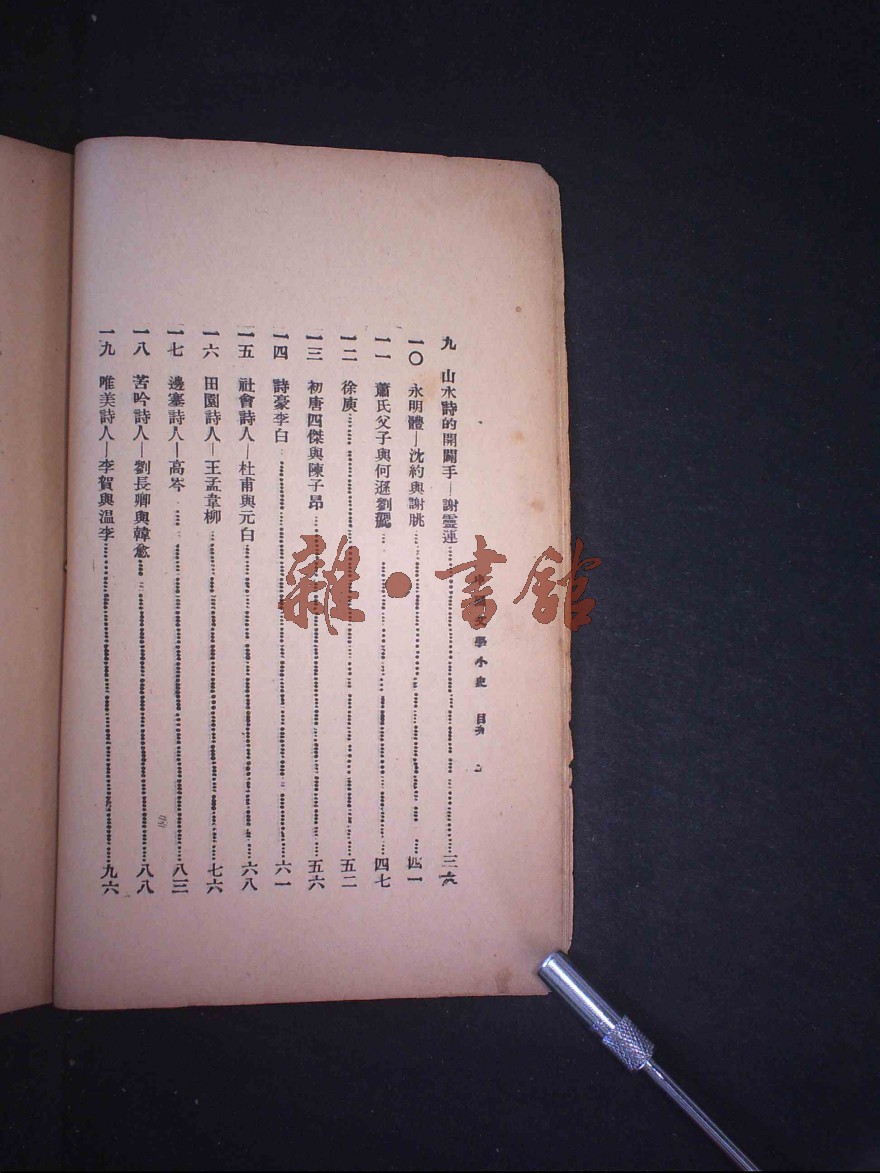 中國文學小史 目次
九 山水詩的開闢手—謝靈運……三六
一〇 永明體—沈約與謝朓……四一
一一 蕭氏父子與何遜劉勰……四七
一二 徐庾……五二
一三 初唐四傑與陳子昂……五六
一四 詩豪李白……六一
一五 社會詩人—杜甫與元白……六八
一六 田園詩人—王孟韋柳……七六
一七 邊塞詩人—高岑……八三
一八 苦吟詩人—劉長卿與韓愈……八八
一九 唯美詩人—李賀與溫李……九六
雜·書館